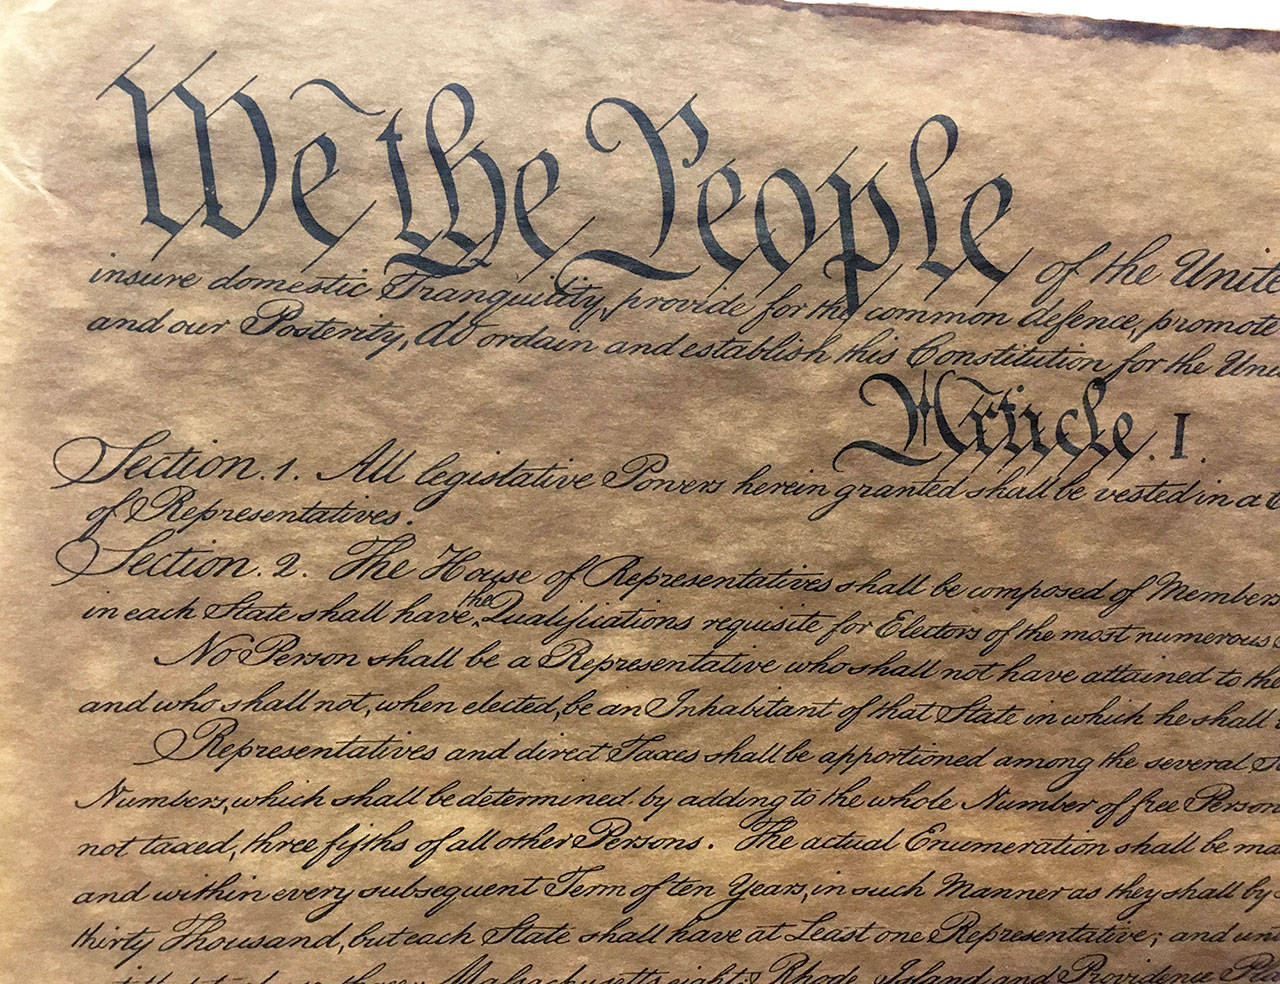 We the People of the Unite
insure domestic Tranquility, provide for the common defence, promote
and our Posterity, do ordain and establish this Constitution for the Uni
Article. I.
Section. 1. All legislative Powers herein granted shall be vested in a C
of Representatives.
Section. 2. The House of Representatives shall be composed of Members
in each State shall have the Qualifications requisite for Electors of the most numerous
No Person shall be a Representative who shall not have attained to the
and who shall not, when elected, be an Inhabitant of that State in which he shall
Representatives and direct Taxes shall be apportioned among the several
Numbers, which shall be determined by adding to the whole Number of free Person
not taxed, three fifths of all other Persons. The actual Enumeration shall be ma
and within every subsequent Term of ten Years, in such Manner as they shall by
thirty Thousand, but each State shall have at Least one Representative; and un
Massachusetts eight, Rhode Island and Providence Pla